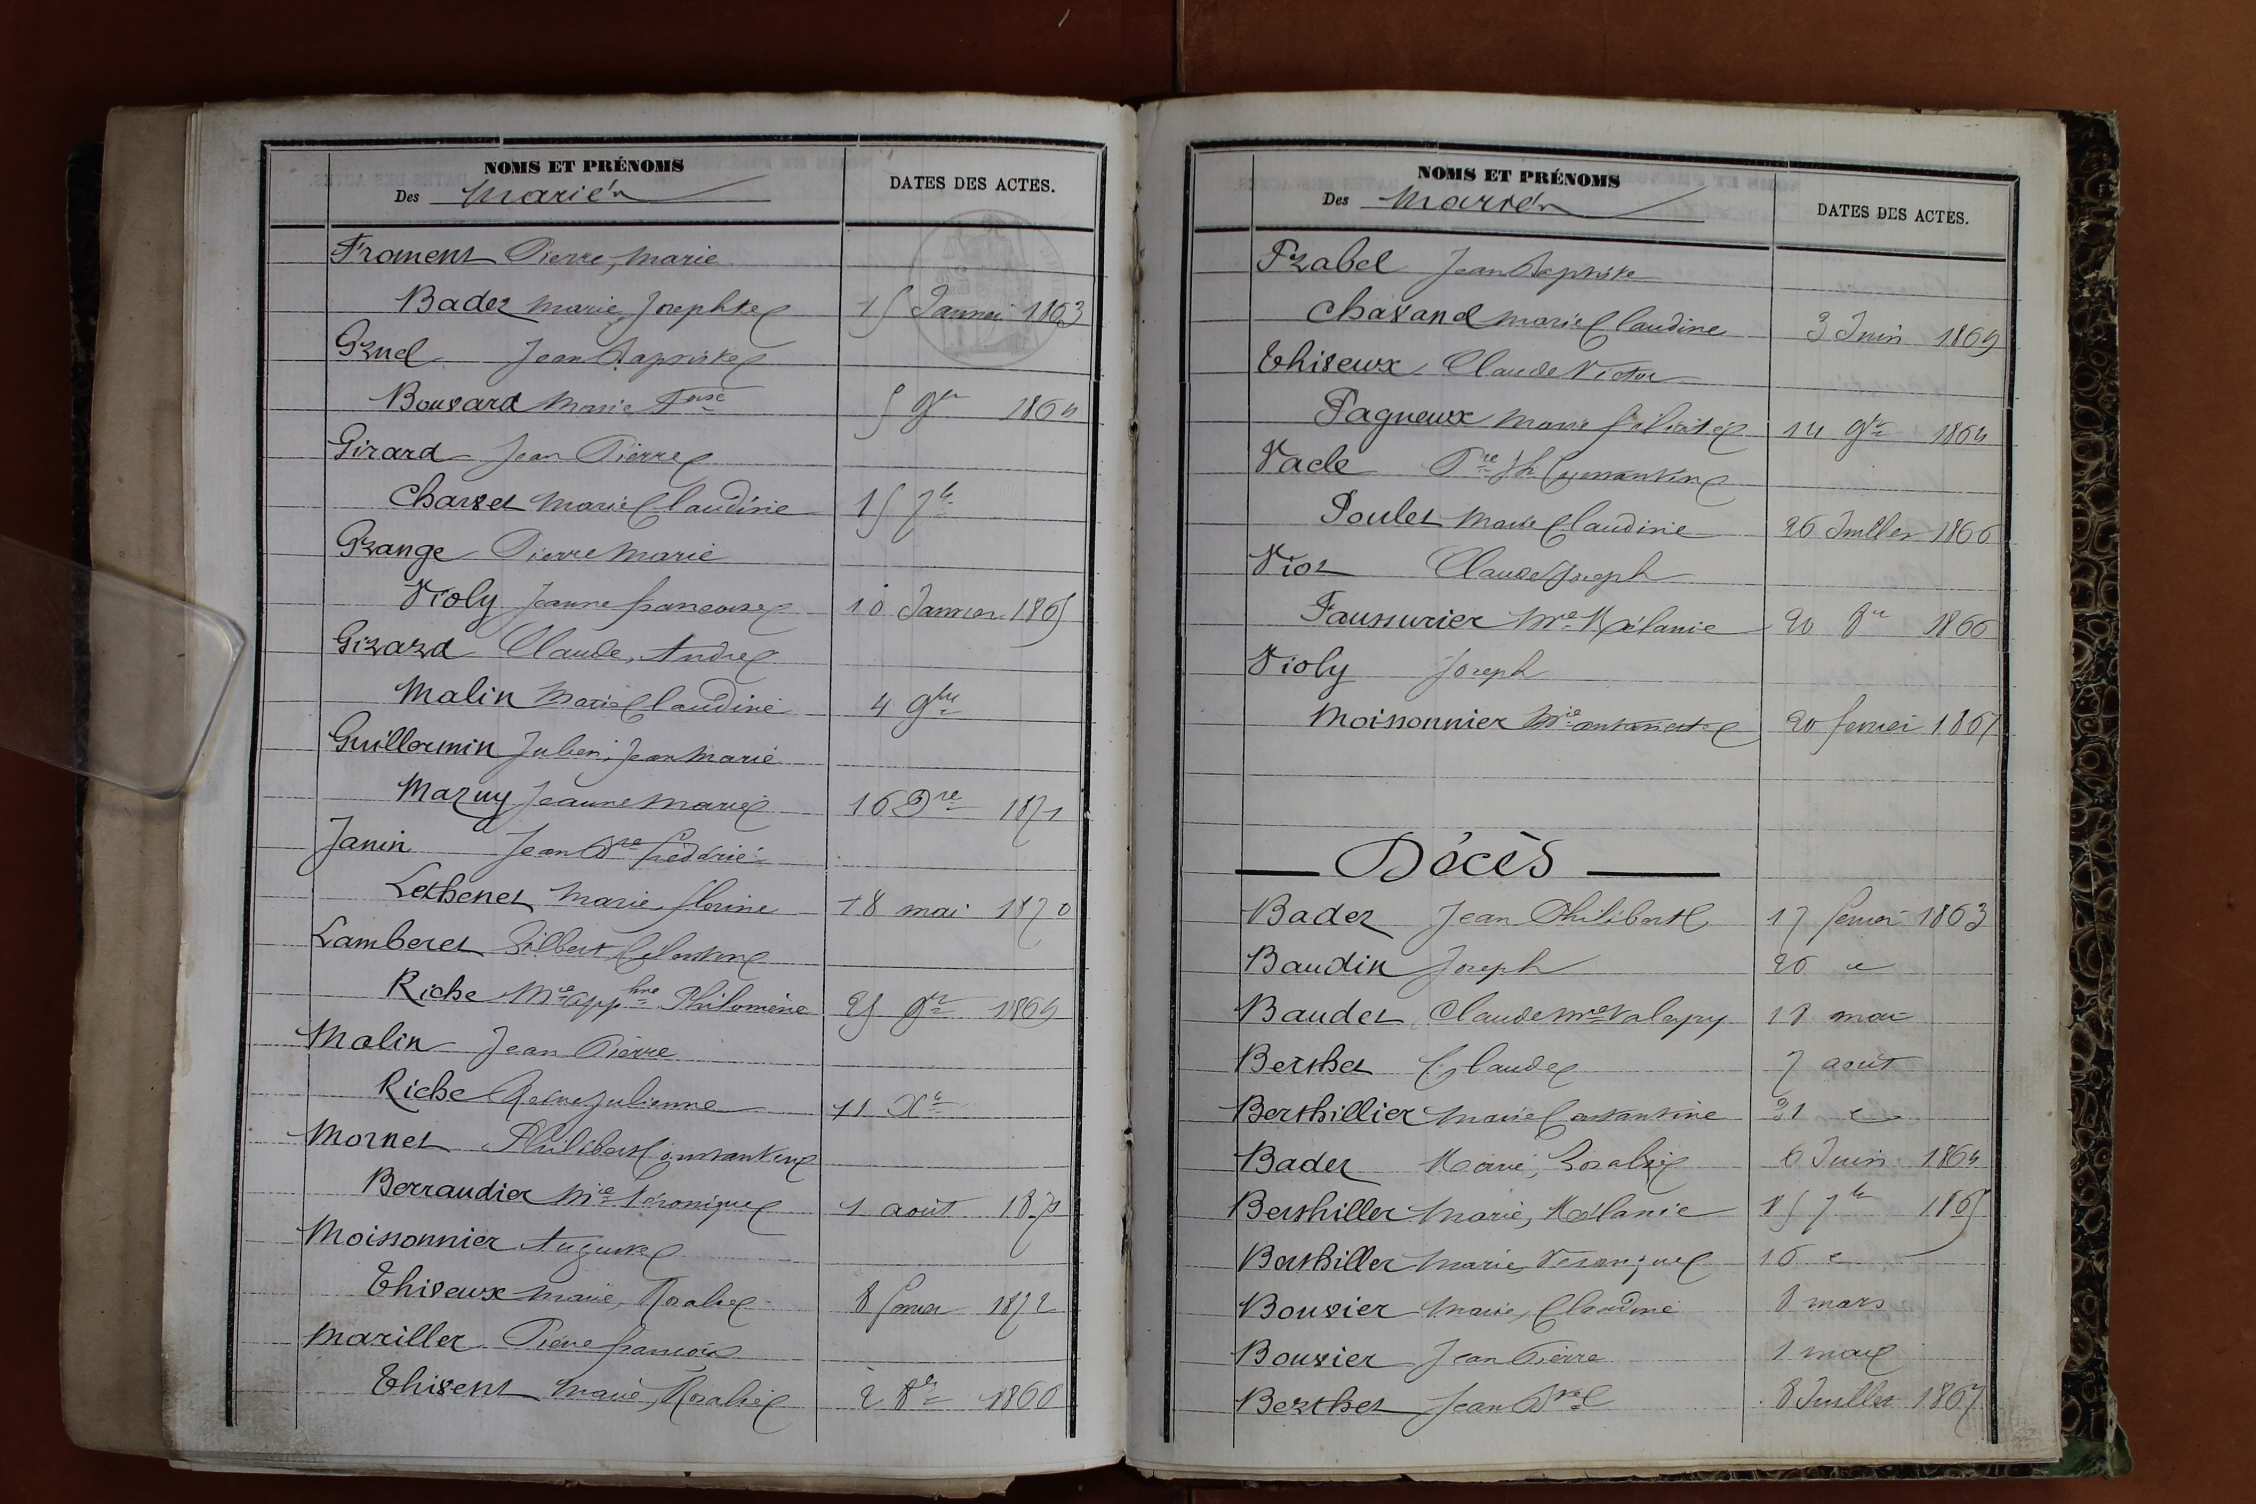 NOMS ET PRÉNOMS
Des Mariés
DATES DES ACTES.
Froment Pierre, Marie
Badet Marie, Josephte 15 Janvier 1863
Gruel Jean Baptiste
Bouvard Marie Fçoise 5 9bre 1864
Girard Jean Pierre
Charvet Marie Claudine 15 7bre
Grange Pierre Marie
Violy Jeanne françoise 10 Janvier 1865
Girard Claude, André
Malin Marie Claudine 4 9bre
Guillermin Julien, Jean Marie
Mazuy Jeanne Marie 16 Dre 1871
Janin Jean Bte
Lethenet Marie florine 18 mai 1870
Lamberet Gilbert Célestin
Riche Philomène 25 9bre 1869
Malin Jean Pierre
Riche Julienne 11 Xbre
Mornet Philibert Constantin
Berraudier Mie Véronique 1 aout 187
Moissonnier Auguste
Thiveux Marie, Rosalie 8 fevrier 1872
Mariller Pierre françois
Thivent Marie, Rosalie 2 8bre 1866
NOMS ET PRÉNOMS
Des Mariés
DATES DES ACTES.
Prabel Jean Baptiste
Chavand Marie Claudine 3 Juin 1869
Thiveux Claude Victor
Pagneux Marie félicité 14 9bre 1864
Vacle Pre Jh Constantin
Poulet Marie Claudine 26 Juillet 1866
Viot Claude Joseph
Faussurier Mie Mélanie 20 8bre 1866
Violy Joseph
Moissonnier Mie antoinette 20 fevrier 1867
Décès
Badet Jean Philibert 17 fevrier 1863
Baudin Joseph 26 "
Baudet Claude Mie Valery 18 mai
Berthet Claude 7 aout
Berthillier Marie Constantine 31 "
Badet Marie, Rosalie 6 Juin 1864
Berthiller Marie, Mélanie 15 7bre 1865
Berthiller Marie Veronique 16 "
Bouvier Marie, Claudine 8 mars
Bouvier Jean Pierre 1 mai
Berthet Jean Bte 8 Juillet 1867